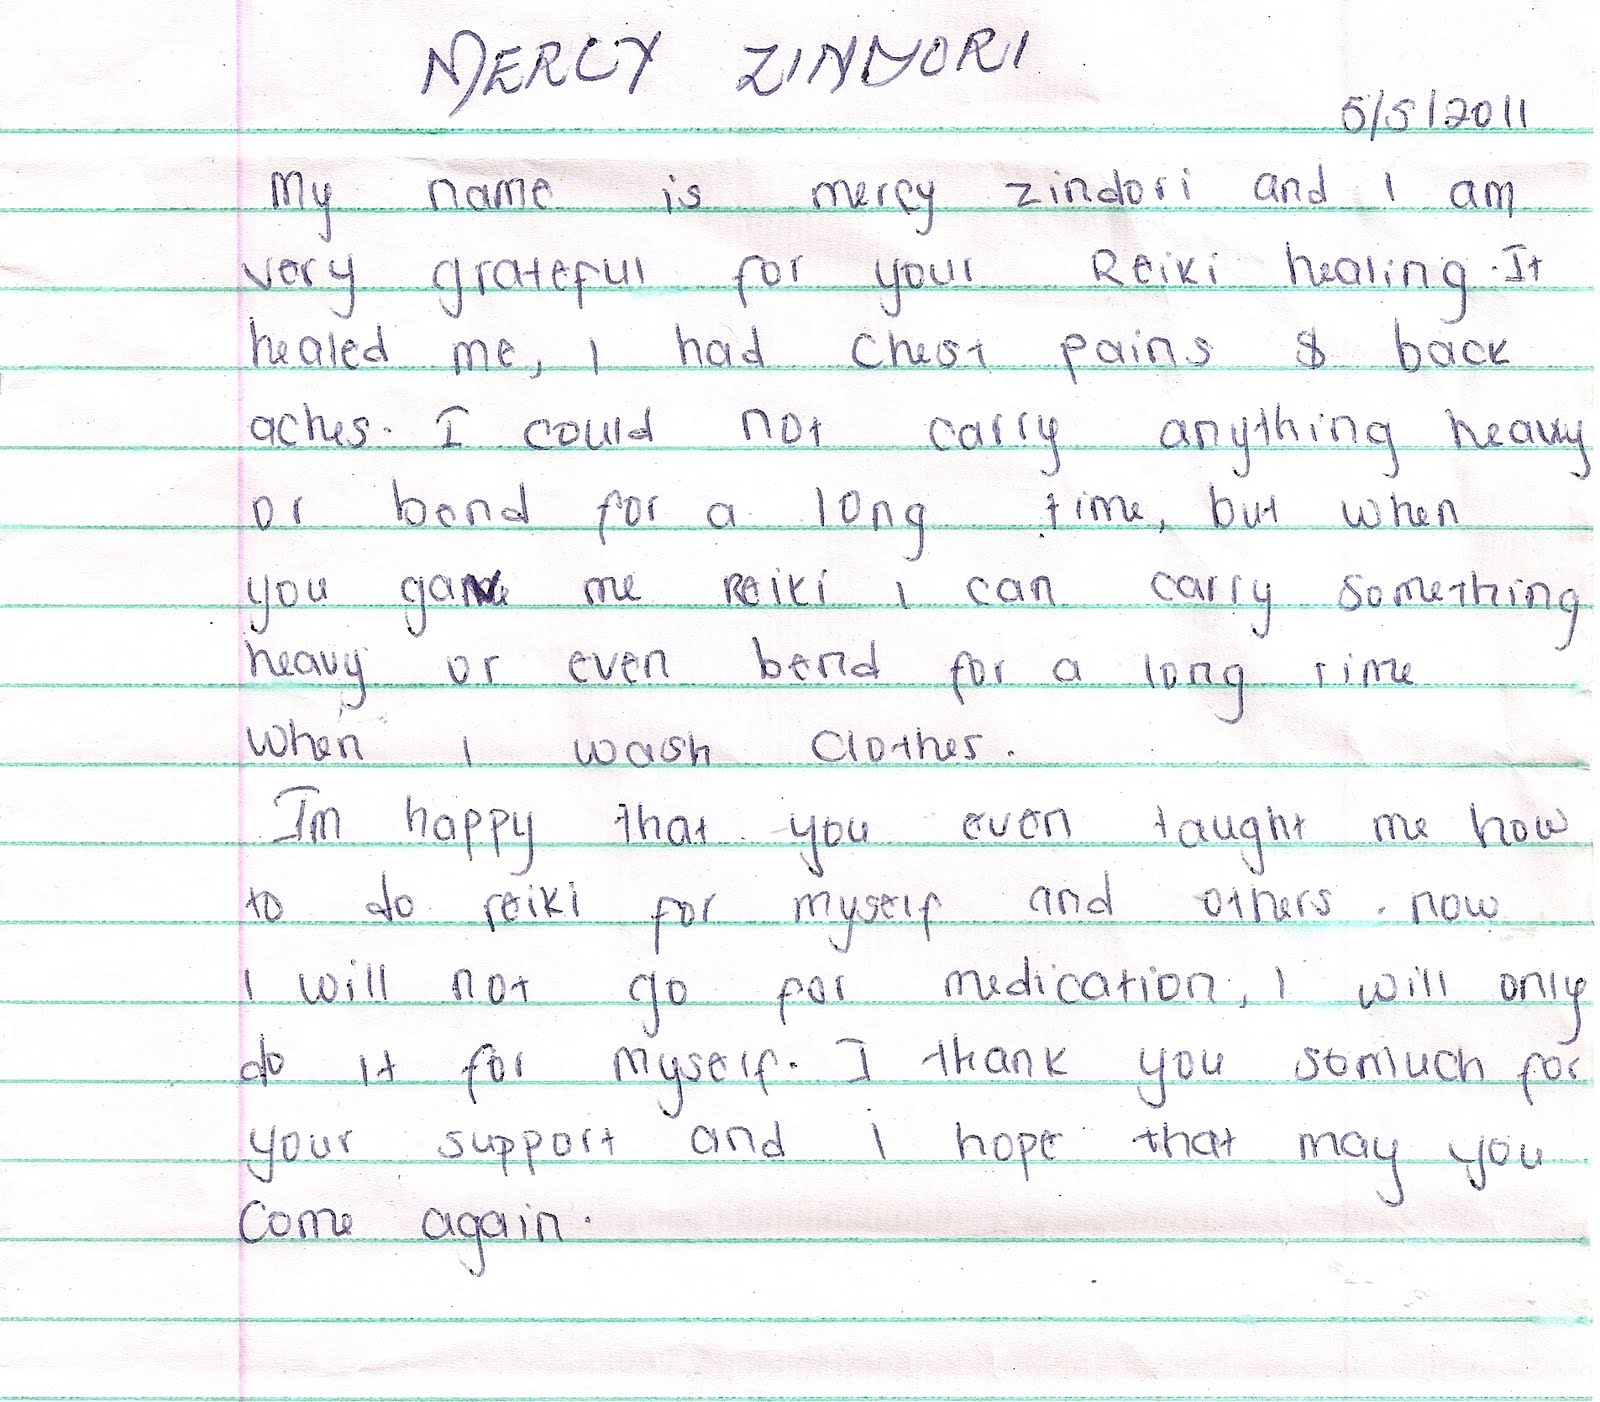 MERCY ZINDORI
5/5/2011
My name is mercy zindori and I am
very grateful for your Reiki healing. It
healed me, I had chest pains & back
aches. I could not carry anything heavy
or bend for a long time, but when
you gave me Reiki I can carry something
heavy or even bend for a long time
when I wash clothes.
Im happy that you even taught me how
to do reiki for myself and others. now
I will not go for medication, I will only
do it for myself. I thank you somuch for
your support and I hope that may you
come again.